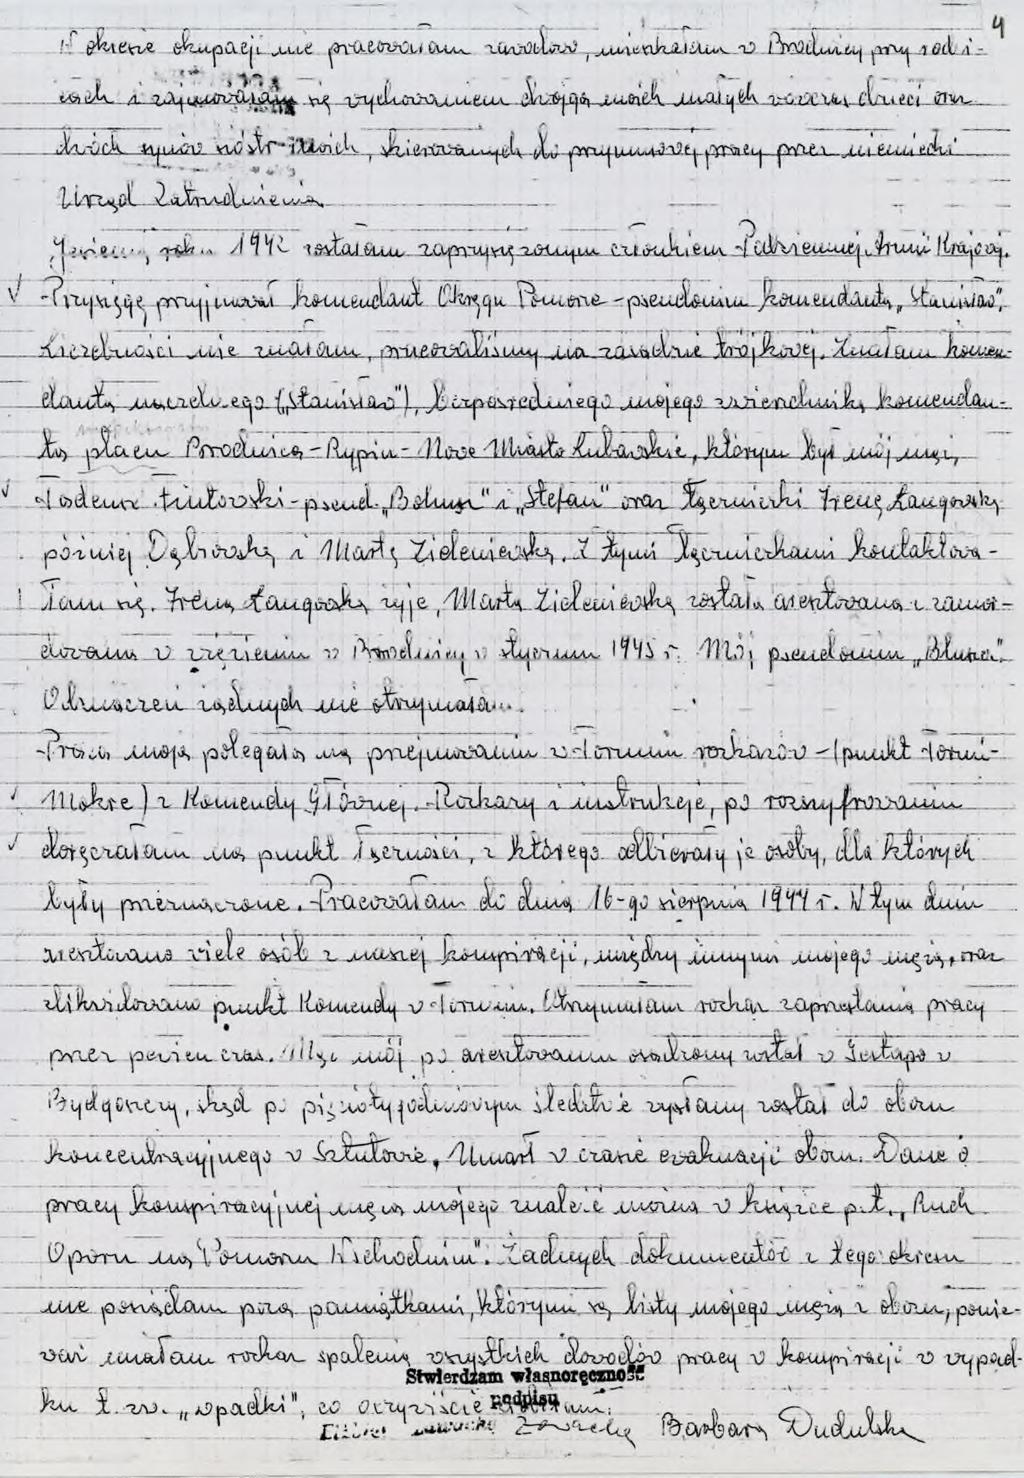 4
W okresie okupacji nie pracowałam zawodowo, mieszkałam w Brodnicy przy rodzi-
cach i zajmowałam się wychowaniem dwojga moich małych wówczas dzieci oraz
dwóch synów sióstr moich, skierowanych do przymusowej pracy przez niemiecki
Urząd Zatrudnienia.
Jesienią roku 1942 zostałam zaprzysiężonym członkiem Podziemnej Armii Krajowej.
Przysięgę przyjmował komendant Okręgu Pomorze - pseudonim komendanta „Stanisław".
Liczebności nie znałam, pracowaliśmy na zasadzie trójkowej. Znałam komen-
danta naczelnego („Stanisław"), bezpośredniego mojego zwierzchnika komendan-
ta placu Brodnica - Rypin - Nowe Miasto Lubawskie, którym był mój mąż,
Tadeusz - pseud. „Bohun" i „Stefan" oraz łączniczki Irenę Łangowską
później Dąbrowską i Martę Zieleniewską. Z tymi łączniczkami kontaktowa-
łam się. Irena Łangowska żyje, Marta Zieleniewska została aresztowana i zamor-
dowana w więzieniu w Brodnicy w styczniu 1945 r. Mój pseudonim „Bluszcz".
Odznaczeń żadnych nie otrzymałam.
Praca moja polegała na przejmowaniu w Toruniu rozkazów - (punkt Toruń-
Mokre) z Komendy Głównej. Rozkazy i instrukcje, po rozszyfrowaniu
doręczałam na punkt łączności, z którego odbierały je osoby, dla których
były przeznaczone. Pracowałam do dnia 16-go sierpnia 1944 r. W tym dniu
aresztowano wiele osób z naszej konspiracji, między innymi mojego męża, oraz
zlikwidowano punkt Komendy w Toruniu. Otrzymałam rozkaz zaprzestania pracy
przez pewien czas. Mąż mój po aresztowaniu osadzony został w Gestapo w
Bydgoszczy, skąd po pięciotygodniowym śledztwie wysłany został do obozu
koncentracyjnego w Sztutowie. Umarł w czasie ewakuacji obozu. Dane o
pracy konspiracyjnej męża mojego znaleźć można w książce p.t. „Ruch
Oporu na Pomorzu Wschodnim". Żadnych dokumentów z tego okresu
nie posiadam poza pamiątkami, którymi są listy mojego męża z obozu, ponie-
waż miałam rozkaz spalenia wszystkich dowodów pracy w konspiracji w wypad-
Stwierdzam własnoręczność
ku t. zw. „wpadki", co oczywiście zrobiłam.
podpisu
Zawacka Barbara Dudulska